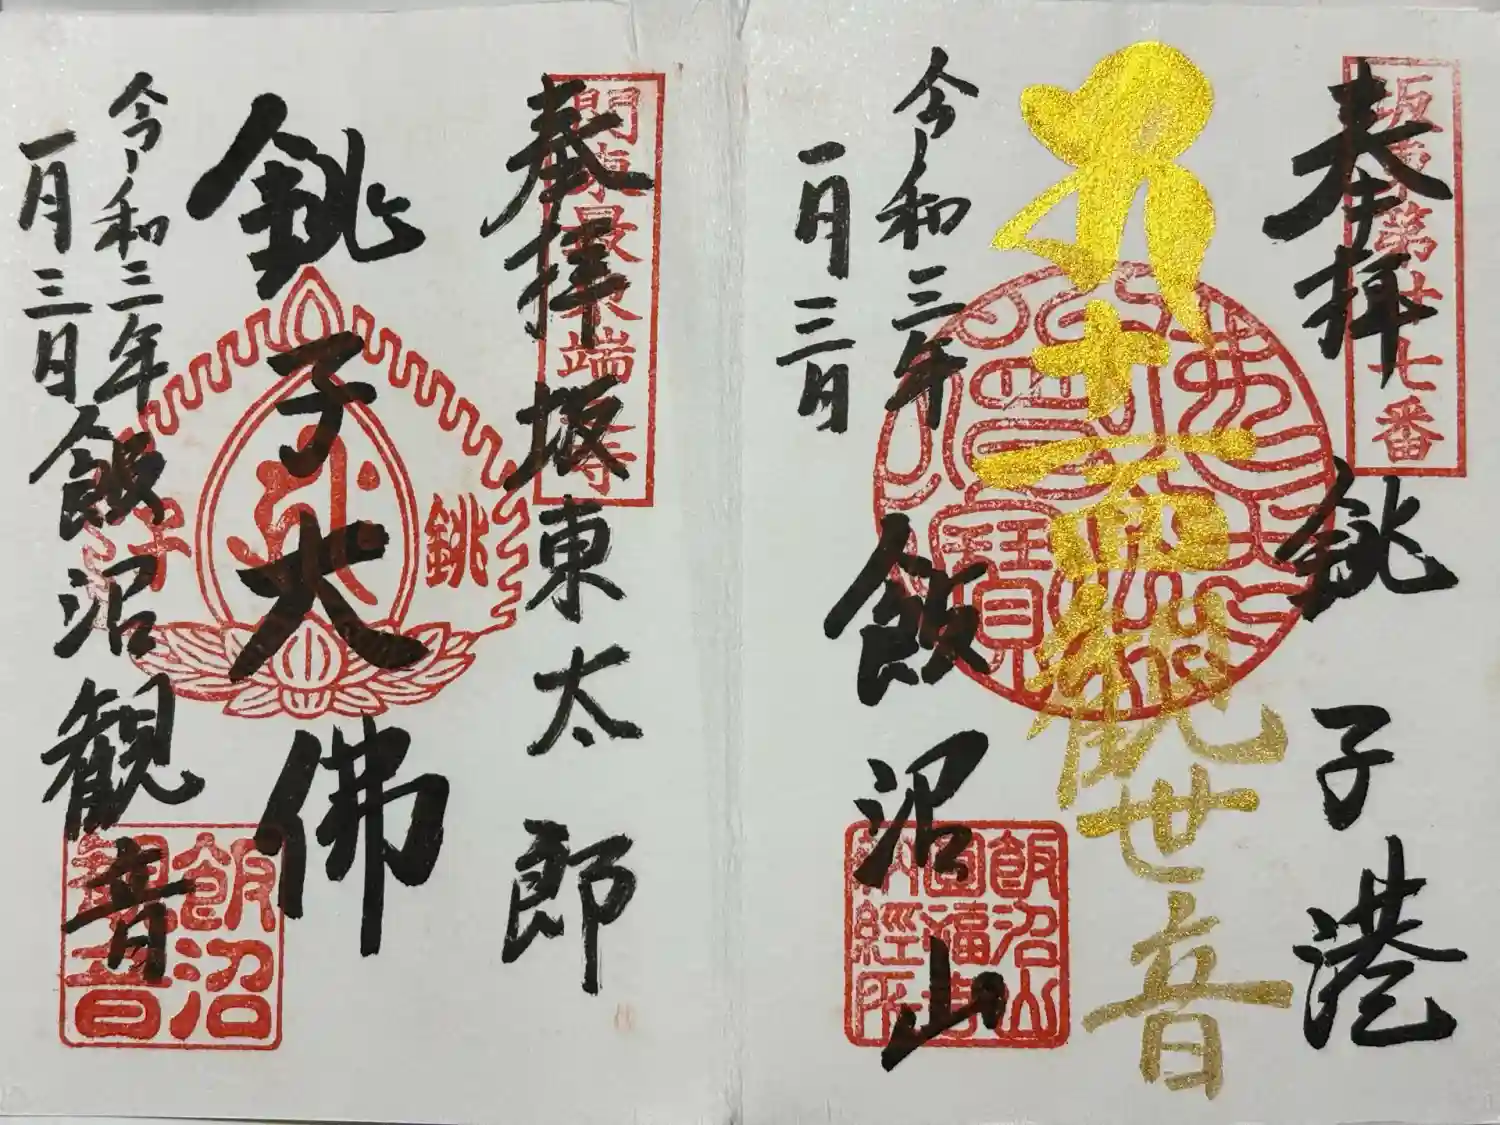 坂東第廿七番
奉拝
銚子港
十一面観世音
令和三年
一月三日
飯沼山
飯沼山
圓福寺
納経所
関東最東端寺
奉拝
坂東太郎
銚子大佛
銚
子
令和三年
一月三日
飯沼観音
飯沼
観音